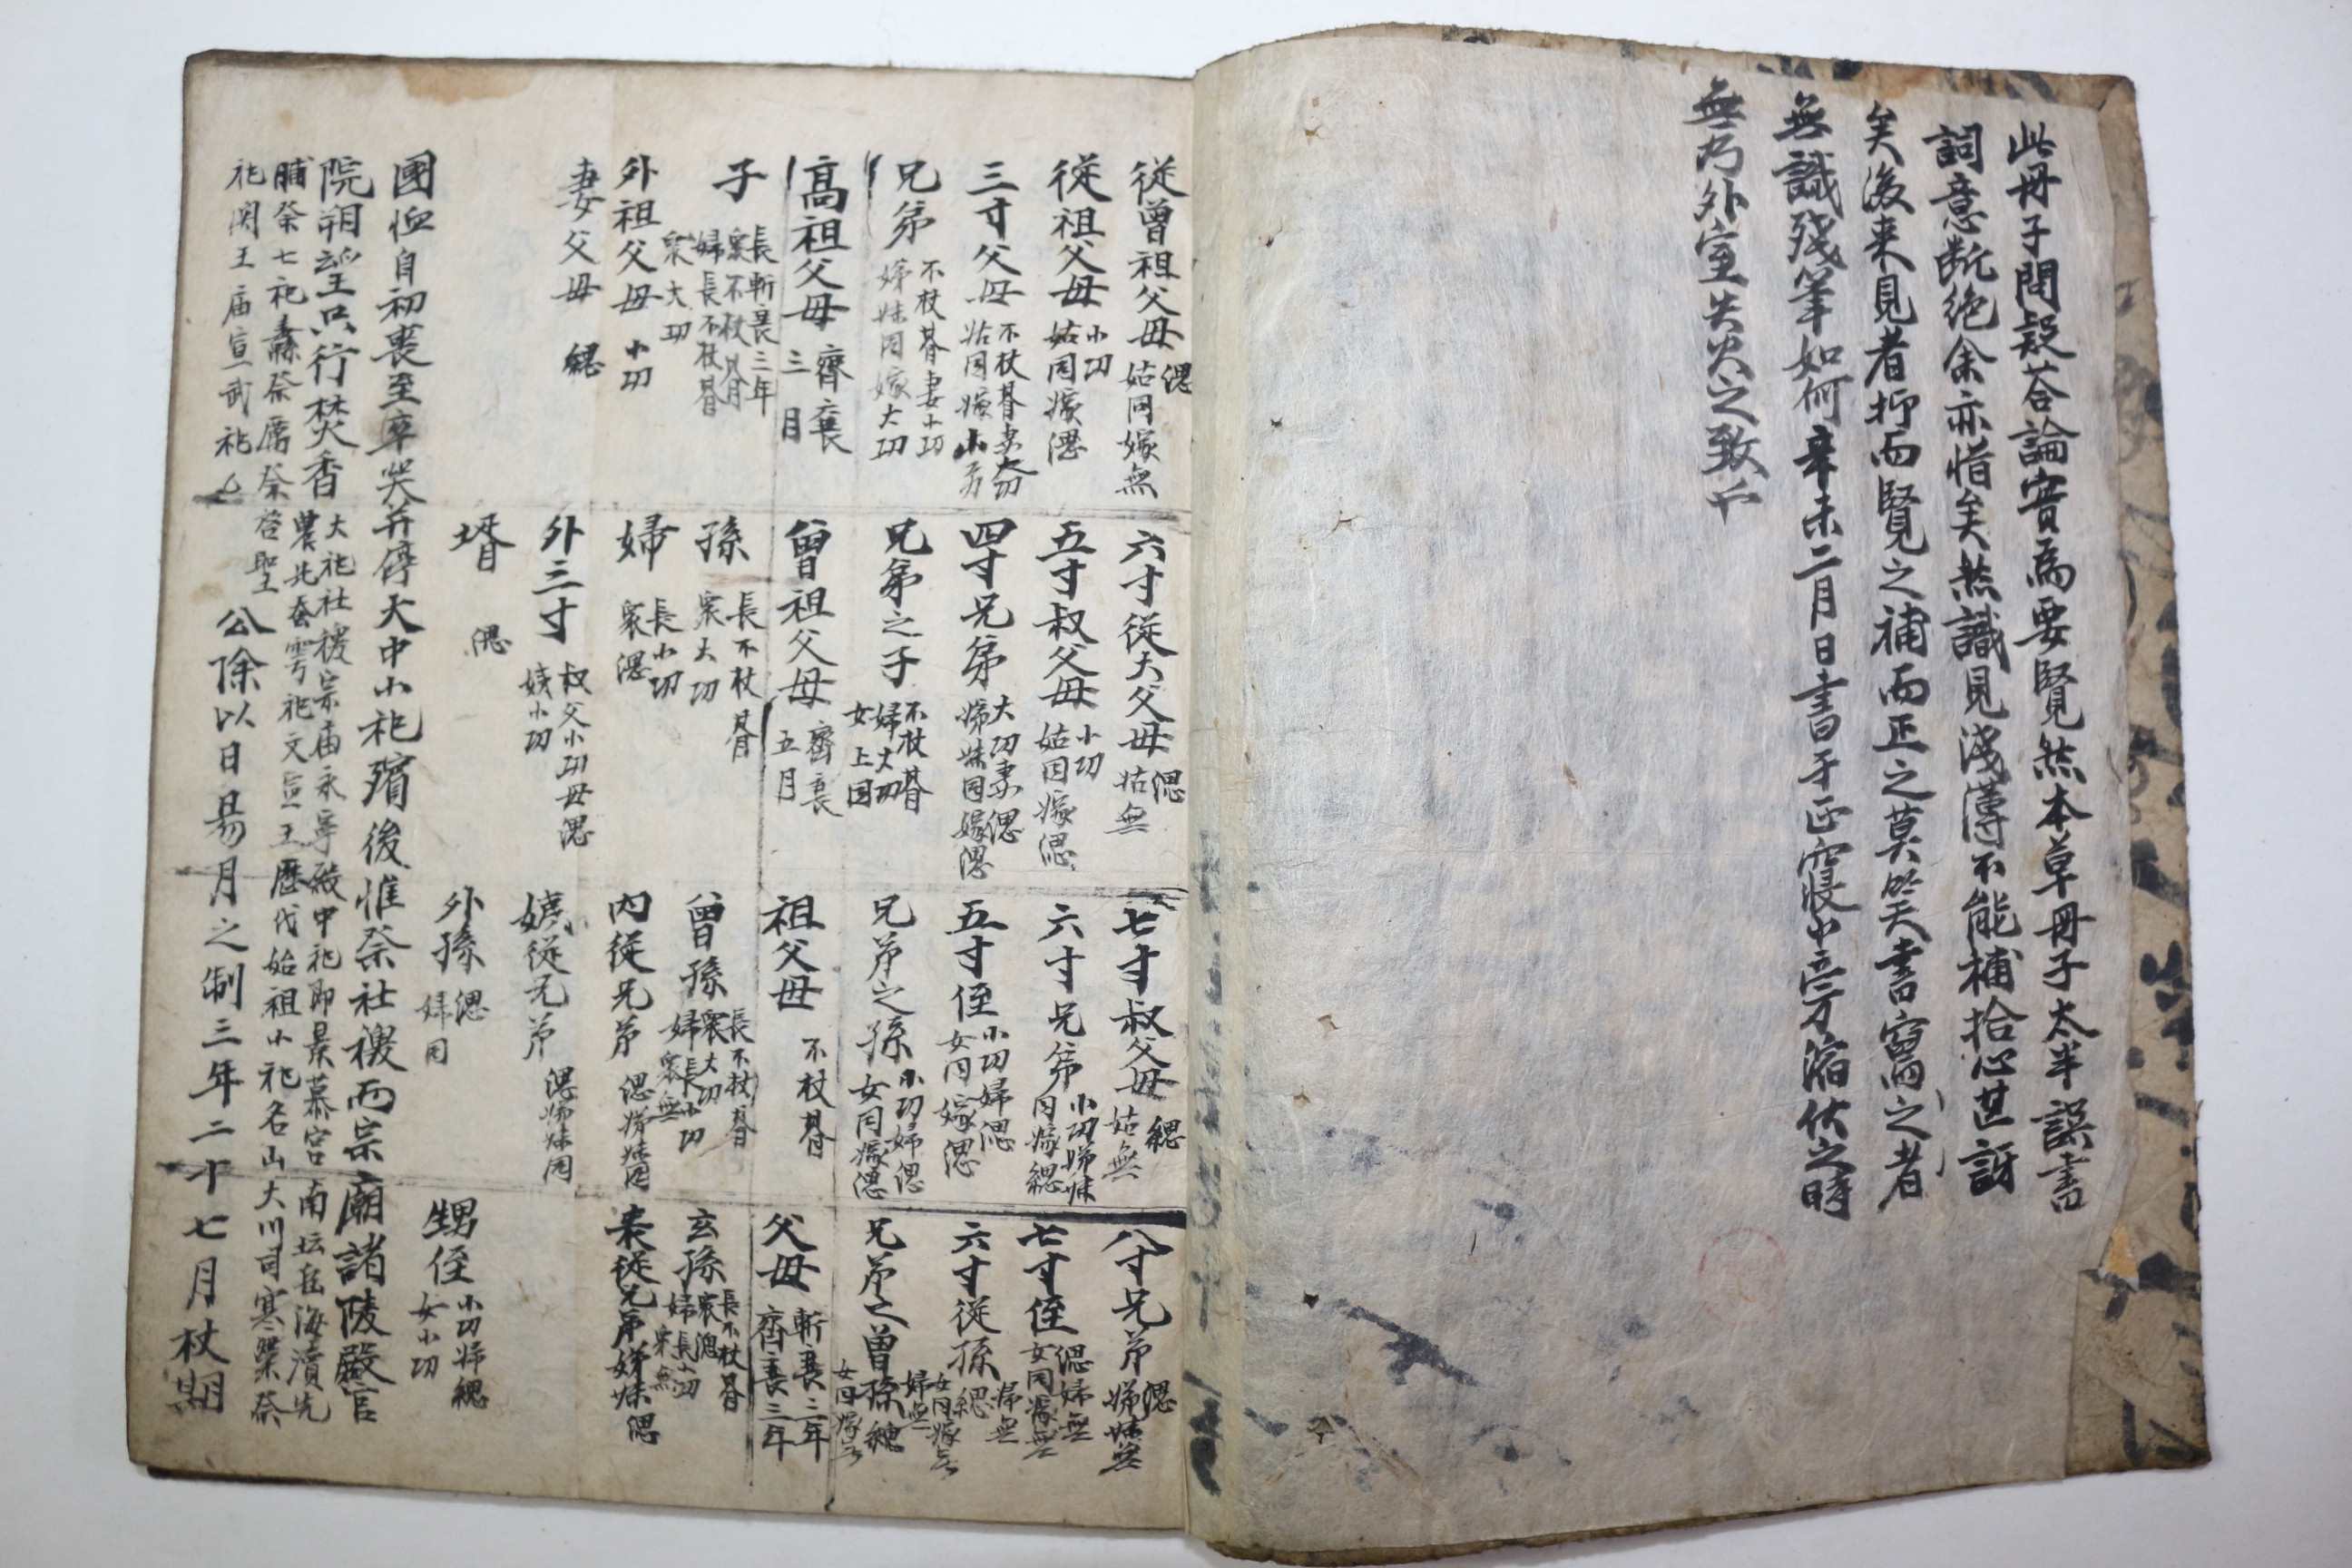 此冊子問疑答論實爲要覽然本草冊子太半誤書
詞意斷絶余亦惜矣然識見淺薄不能補拾心甚訝
矣後來見者抑而賢覽之補而正之莫咲矢書寫之者
無識殘筆如何辛未二月日書于正寢小旁滔伏之時
無乃外室失火之致千
從曾祖父母 緦 姑同嫁無
六寸從大父母 緦 姑無
七寸叔父母 緦 姑無
八寸兄弟 緦 姊妹無
從祖父母 小功 姑同嫁緦
五寸叔父母 小功 姑同嫁緦
六寸兄弟 小功姊妹 同嫁緦
七寸侄 緦婦無 女同嫁無
三寸父母 不杖朞妻大功 姑同嫁小功
四寸兄弟 大功妻緦 姊妹同嫁緦
五寸侄 小功婦緦 女同嫁緦
六寸從孫 緦 婦無 女同嫁无
兄弟 不杖朞妻小功 姊妹同嫁大功
兄弟之子 不杖朞 婦大功 女上同
兄弟之孫 小功婦緦 女同嫁緦
兄弟之曾孫 緦 婦無 女同嫁无
高祖父母 齊衰 三月
曾祖父母 齊衰 五月
祖父母 不杖朞
父母 斬衰三年 齊衰三年
子 長斬衰三年 衆不杖朞 婦長不杖朞 衆大功
孫 長不杖朞 衆大功
曾孫 長不杖朞 衆大功 婦長小功 衆無
玄孫 長不杖朞 衆緦 婦長小功 衆無
外祖父母 小功
婦 長小功 衆緦
內從兄弟 緦姊妹同
表從兄弟姊妹緦
妻父母 緦
外三寸 叔父小功母緦 姨小功
姨從兄弟 緦姊妹同
壻 緦
外孫 緦 婦同
甥侄 小功婦緦 女小功
國恤自初喪至卒哭并停大中小祀殯後惟祭社稷而宗廟諸陵殿官
院朔望只行焚香 大祀社稷宗庙永寧殿中祀即景慕宮南坛岳海瀆先
農先蚕雩祀文宣王歷代始祖小祀名山大川司寒禜祭
酺祭七祀纛祭厲祭啓聖
祀関王庙宣武祀厶 公除以日易月之制三年二十七月杖期